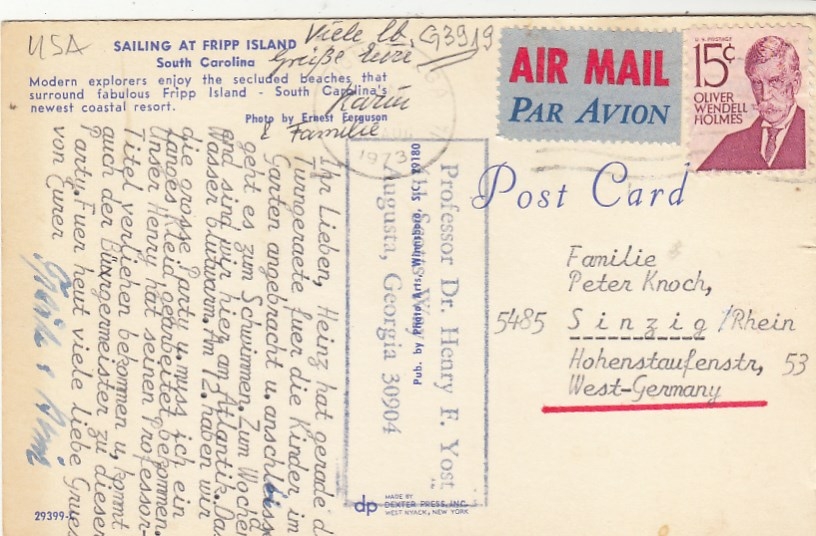 USA
SAILING AT FRIPP ISLAND
South Carolina
Modern explorers enjoy the secluded beaches that
surround fabulous Fripp Island - South Carolina's
newest coastal resort.
Photo by Ernest Ferguson
Viele lb. G3919
Grüße Eure
Karin
& Familie
1973
AIR MAIL
PAR AVION
U.S. POSTAGE
15¢
OLIVER
WENDELL
HOLMES
Post Card
Ihr Lieben, Heinz hat gerade d
Turngeraete fuer die Kinder im
Garten angebracht u. anschliess
geht es zum Schwimmen. Zum Wochen
end sind wir hier am Atlantik. Das
Wasser blutwarm. Am 12. haben wir
die grosse Party u. muss ich ein
langes Kleid gearbeitet bekommen.
Unser Henry hat seinen Professor-
Titel verliehen bekommen u. kommt
auch der Bürgermeister zu dieser
Party. Fuer heut viele liebe Gruess
von Eurer
Professor Dr. Henry F. Yost
Augusta, Georgia 30904
Pub. by Photo Arts, Winnsboro, S.C. 29180
Familie
Peter Knoch,
5485 Sinzig /Rhein
Hohenstaufenstr, 53
West-Germany
dp
MADE BY
DEXTER PRESS, INC.
WEST NYACK, NEW YORK